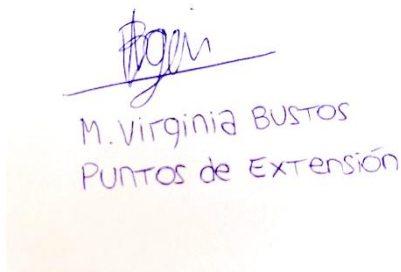 M. Virginia BUSTOS
PUNTOS de EXTENSIÓN